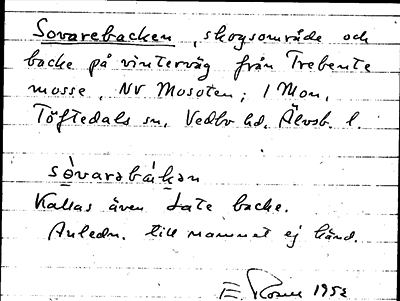 Sovarebacken, skogsområde och
backe på vinterväg från Trebente
mosse, NV Mosoten; 1 Mon,
Töftedals sn, Vedbo hd, Älvsb. l.
sòvarəbákən
Kallas även Late backe.
Anledn. till namnet ej känd.
E. Rosell 1952